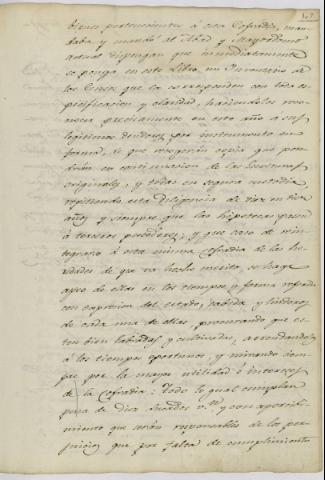 bienes pertenecientes á esta Cofradia, man-
daba y mandó al Abad y Mayordomo
actual dispongan que inmediatamente
se ponga en este Libro un Inventario de
los Censos que la corresponden con toda es-
pecificacion y claridad, haciendoles reno-
nocer precisamente en este año á sus
legitimos deudores por instrumento en
forma, de que recogerán copia que pon-
drán en continuacion de las Escrituras
originales, y todas en segura custodia,
repitiendo esta diligencia de diez en diez
años y siempre que las hipotecas pasen
á terceros poseedores; y que caso de rein-
tegrarse á esta misma Cofradia de las he-
redades de que va hecho merito, se haga
apeo de ellas en los tiempos y forma
con expresion del estado, cabida, y linderos
de cada una de ellas, procurando que es-
ten bien labradas y cultivadas, arrendandolas
á los tiempos oportunos, y mirando siem-
pre por la mayor utilidad é intereses
de la Cofradia: Todo lo qual cumplan
pena de diez ducados v.n y con apercibi-
miento que serán responsables de los per-
juicios que por falta de cumplimiento